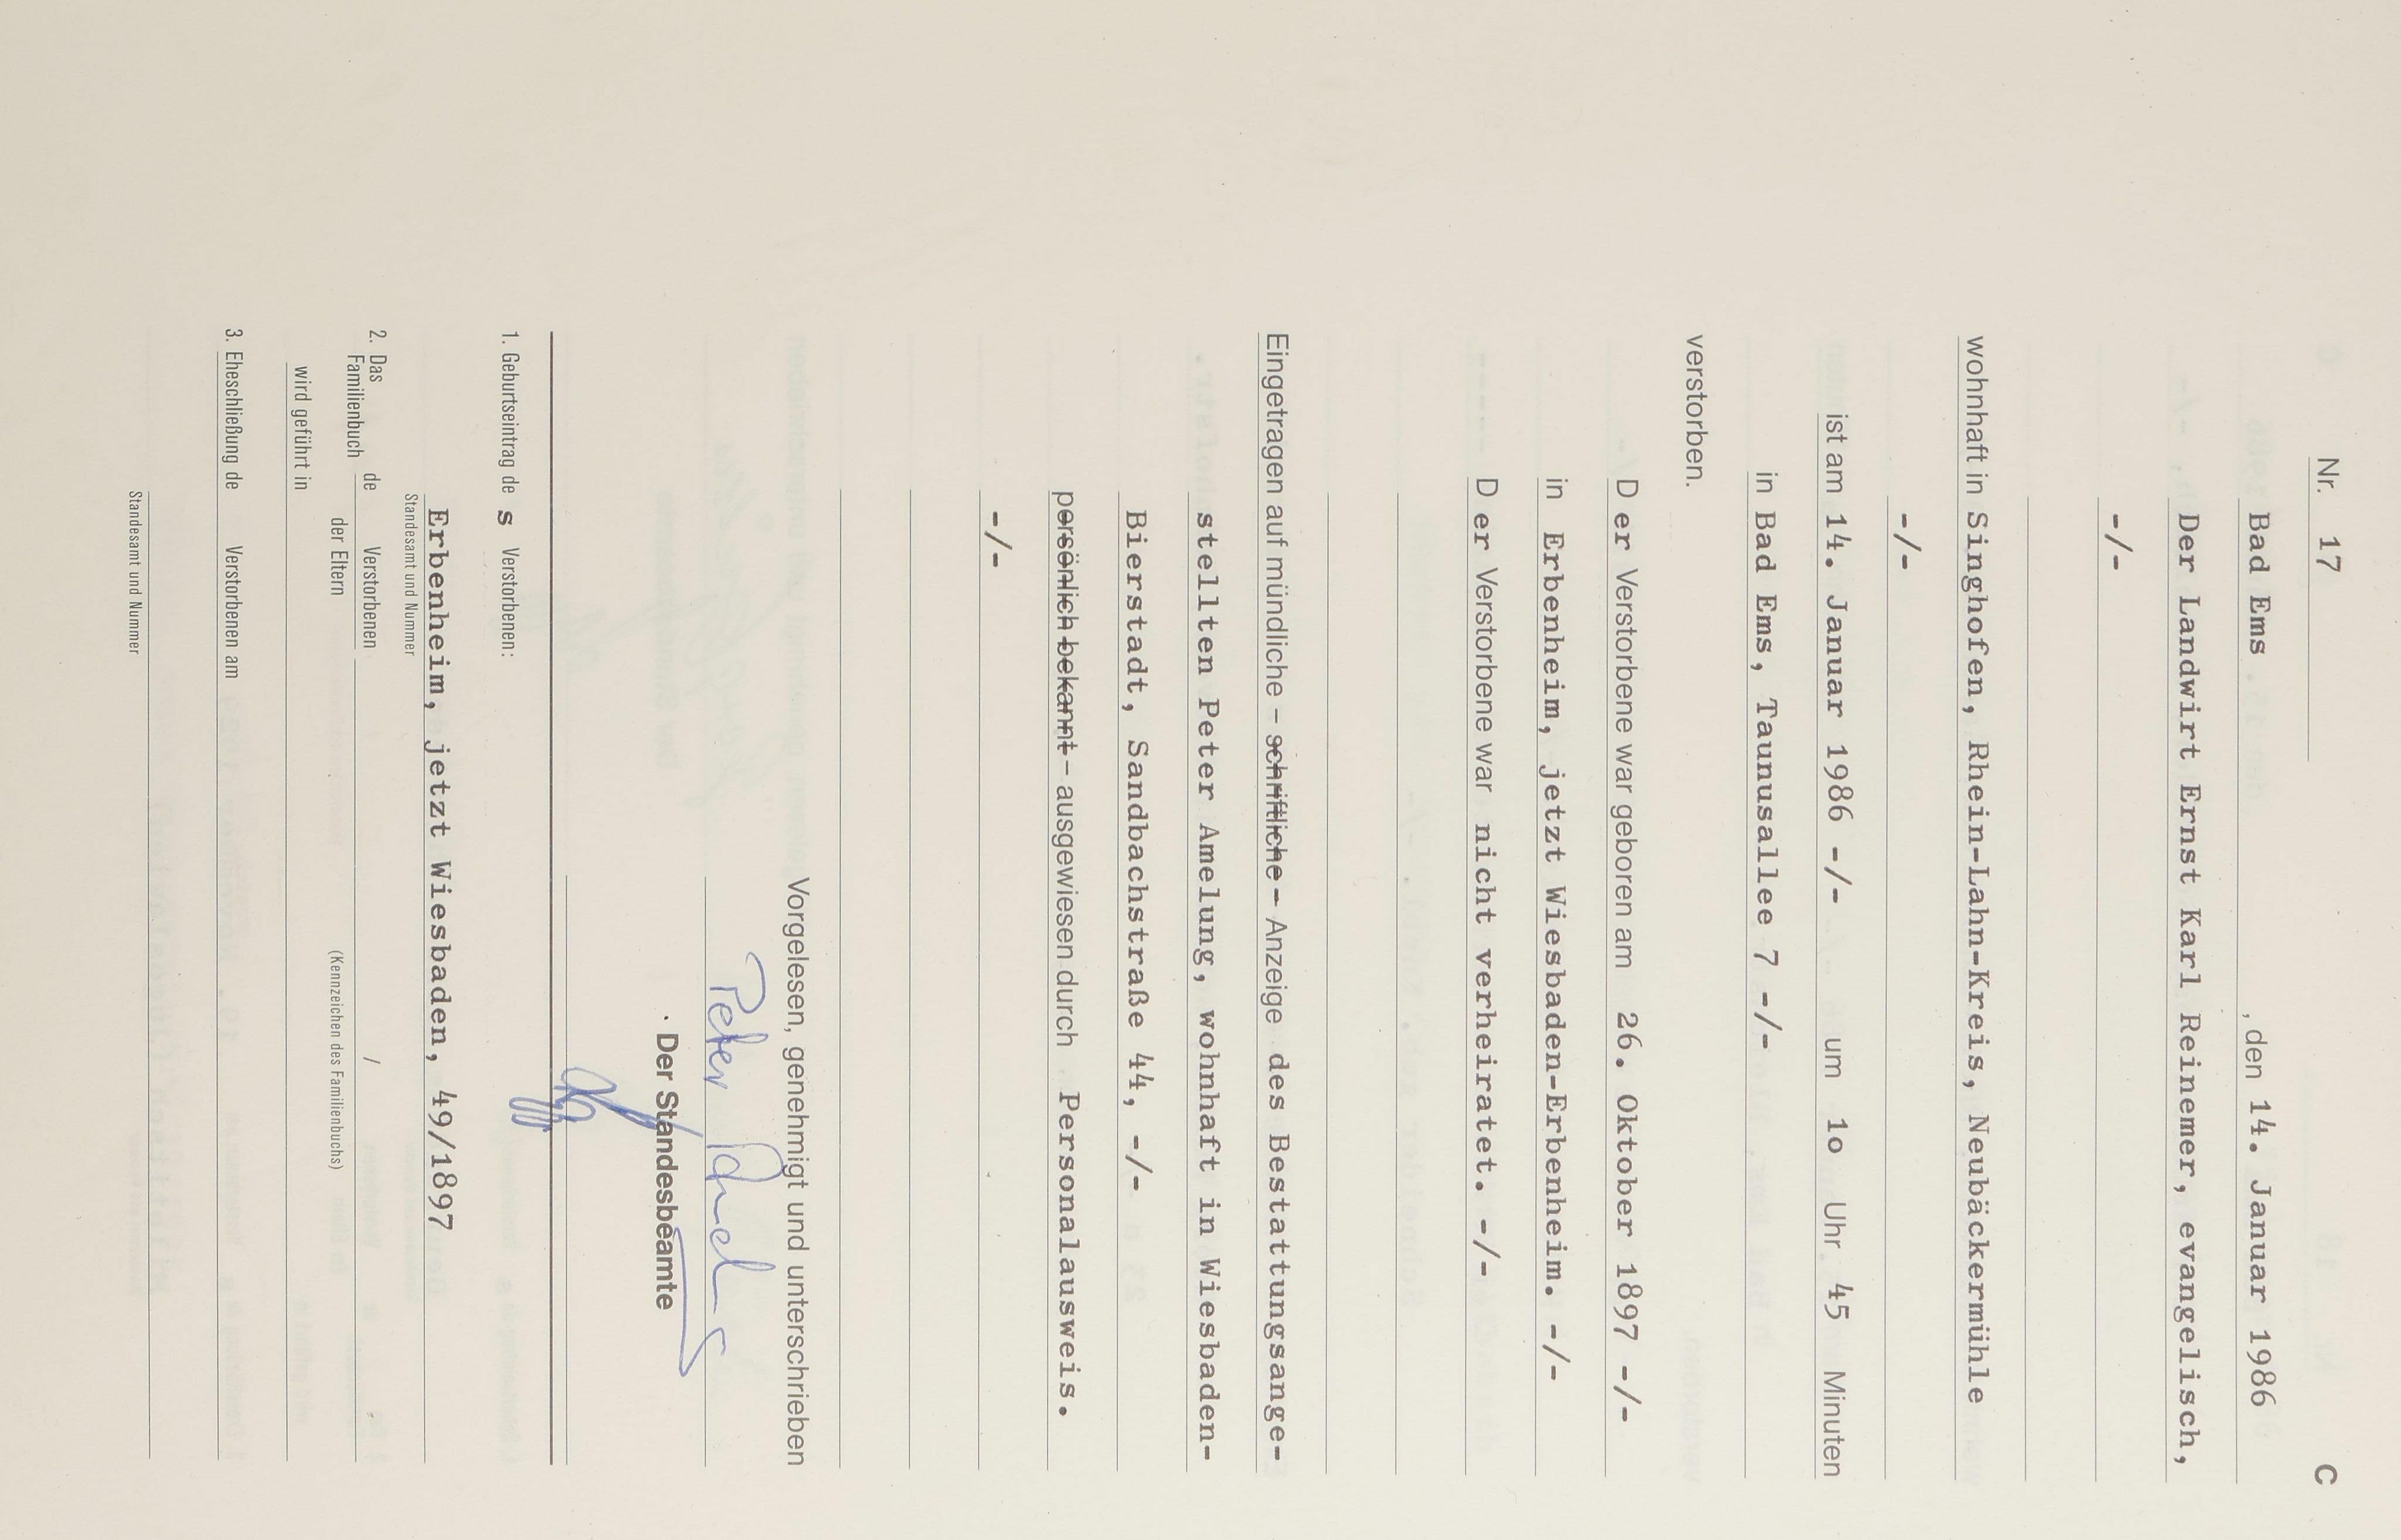 Nr. 17
C
Bad Ems , den 14. Januar 1986
Der Landwirt Ernst Karl Reinemer, evangelisch,
-/-
wohnhaft in Singhofen, Rhein-Lahn-Kreis, Neubäckermühle
-/-
ist am 14. Januar 1986 -/- um 1o Uhr 45 Minuten
in Bad Ems, Taunusallee 7 -/-
verstorben.
D er Verstorbene war geboren am 26. Oktober 1897 -/-
in Erbenheim, jetzt Wiesbaden-Erbenheim. -/-
D er Verstorbene war nicht verheiratet. -/-
Eingetragen auf mündliche – schriftliche – Anzeige des Bestattungsange-
stellten Peter Amelung, wohnhaft in Wiesbaden-
Bierstadt, Sandbachstraße 44, -/-
persönlich bekannt – ausgewiesen durch Personalausweis.
-/-
Vorgelesen, genehmigt und unterschrieben
Peter
Der Standesbeamte
1. Geburtseintrag de s Verstorbenen:
Erbenheim, jetzt Wiesbaden, 49/1897
Standesamt und Nummer
2. Das Familienbuch de Verstorbenen /
der Eltern (Kennzeichen des Familienbuchs)
wird geführt in
3. Eheschließung de Verstorbenen am
Standesamt und Nummer